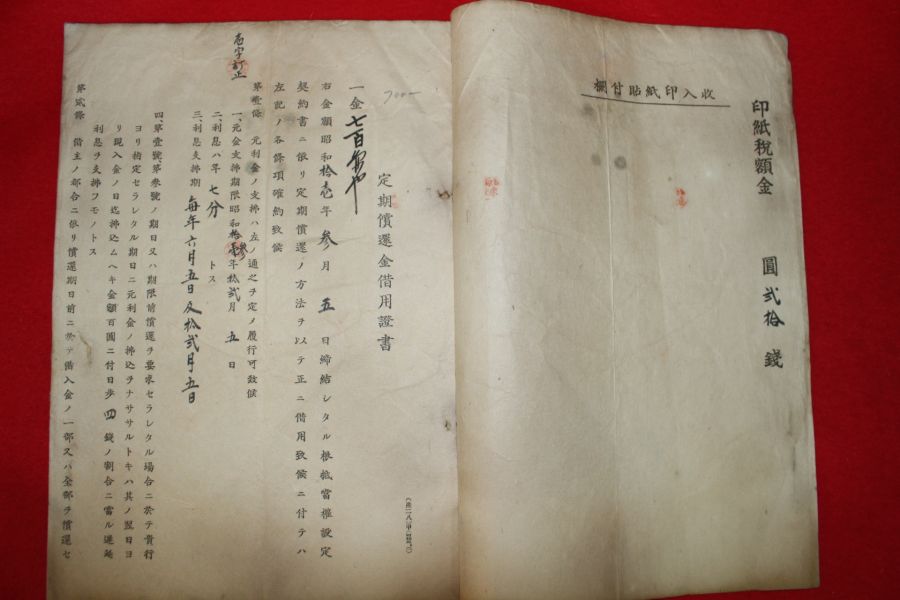 收入印紙貼付欄
印紙稅額金　圓貳拾錢
壱字訂正
定期償還金借用證書
一金七百圓也
700—
右金額昭和拾壱年參月五日締結シタル根抵當權設定
契約書ニ依リ定期償還ノ方法ヲ以テ正ニ借用致候ニ付テハ
左記ノ各條項確約致候
第壹條　元利金ノ支拂ハ左ノ通之ヲ定メ履行可致候
一、元金支拂期限昭和拾參年拾貳月五日
二、利息ハ年七分トス
三、利息支拂期每年六月五日及拾貳月五日
四第壹號第參號ノ期日又ハ期限前償還ヲ要求セラレタル場合ニ於テ貴行
ヨリ指定セラレタル期日ニ元利金ノ拂込ヲナササルトキハ其ノ翌日ヨ
リ現入金ノ日迄拂込ムヘキ金額百圓ニ付日步四錢ノ割合ニ當ル遲延
利息ヲ支拂フモノトス
第貳條　借主ノ都合ニ依リ償還期日前ニ於テ借入金ノ一部又ハ全部ヲ償還セ